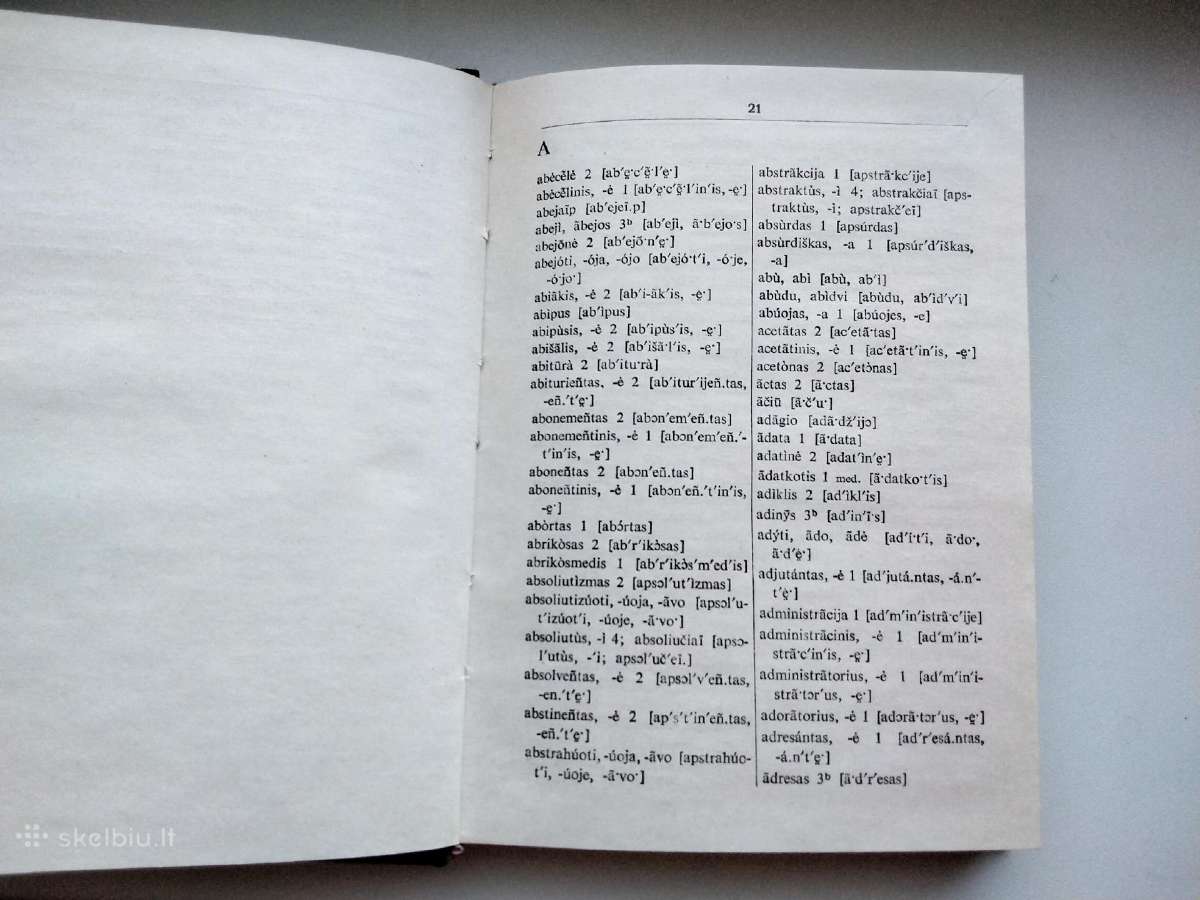 21
A
abėcė̃lė 2 [ab′ẹ·c′ẹ̃·l′ẹ·]
abėcė̃linis, -ė 1 [ab′ẹ·c′ẹ̃·l′in′is, -ẹ·]
abejaĩp [ab′ejeĩ.p]
abejì, ãbejos 3ᵇ [ab′ejì, ã·b′ejo·s]
abejõnė 2 [ab′ejõ·n′ẹ·]
abejóti, -ója, -ójo [ab′ejó·t′i, -ó·je,
-ó·jo·]
abiãkis, -ė 2 [ab′i-ãk′is, -ẹ·]
abìpus [ab′ìpus]
abipùsis, -ė 2 [ab′ipùs′is, -ẹ·]
abišãlis, -ė 2 [ab′išã·l′is, -ẹ·]
abitūrà 2 [ab′itu·rà]
abiturieñtas, -ė 2 [ab′itur′ijeñ.tas,
-eñ.′t′ẹ·]
abonemeñtas 2 [abɔn′em′eñ.tas]
abonemeñtinis, -ė 1 [abɔn′em′eñ.′-
t′in′is, -ẹ·]
aboneñtas 2 [abɔn′eñ.tas]
aboneñtinis, -ė 1 [abɔn′eñ.′t′in′is,
-ẹ·]
abòrtas 1 [abɔ́rtas]
abrikòsas 2 [ab′r′ikɔ̀sas]
abrikòsmedis 1 [ab′r′ikɔ̀s′m′ed′is]
absoliutìzmas 2 [apsɔl′ut′ìzmas]
absoliutizúoti, -úoja, -ãvo [apsɔl′u-
t′izúot′i, -úoje, -ã·vo·]
absoliutùs, -ì 4; absoliučiaĩ [apsɔ-
l′utùs, -′i; apsɔl′uč′eĩ.]
absolveñtas, -ė 2 [apsɔl′v′eñ.tas,
-en.′t′ẹ·]
abstineñtas, -ė 2 [ap′s′t′in′eñ.tas,
-eñ.′t′ẹ·]
abstrahúoti, -úoja, -ãvo [apstrahúo-
t′i, -úoje, -ã·vo·]
abstrãkcija 1 [apstrã·kc′ije]
abstraktùs, -ì 4; abstrakčiaĩ [aps-
traktùs, -ì; apstrakč′eĩ]
absùrdas 1 [apsúrdas]
absùrdiškas, -a 1 [apsúr′d′iškas,
-a]
abù, abì [abù, ab′ì]
abùdu, abìdvi [abùdu, ab′ìd′v′i]
abúojas, -a 1 [abúojes, -e]
acetãtas 2 [ac′etã·tas]
acetãtinis, -ė 1 [ac′etã·t′in′is, -ẹ·]
acetònas 2 [ac′etɔ̀nas]
ãctas 2 [ã·ctas]
ãčiū [ã·č′u·]
adãgio [adã·dž′ijɔ]
ãdata 1 [ã·data]
adatìnė 2 [adat′ìn′ẹ·]
ãdatkotis 1 med. [ã·datko·t′is]
adìklis 2 [ad′ìkl′is]
adinỹs 3ᵇ [ad′in′ĩ·s]
adýti, ãdo, ãdė [ad′í·t′i, ã·do·,
ã·d′ẹ·]
adjutántas, -ė 1 [ad′jutá.ntas, -á.n′-
t′ẹ·]
administrãcija 1 [ad′m′in′istrã·c′ije]
administrãcinis, -ė 1 [ad′m′in′i-
strã·c′in′is, -ẹ·]
administrãtorius, -ė 1 [ad′m′in′i-
strã·tɔr′us, -ẹ·]
adorãtorius, -ė 1 [adɔrã·tɔr′us, -ẹ·]
adresántas, -ė 1 [ad′r′esá.ntas,
-á.n′t′ẹ·]
ãdresas 3ᵇ [ã·d′r′esas]
skelbiu.lt